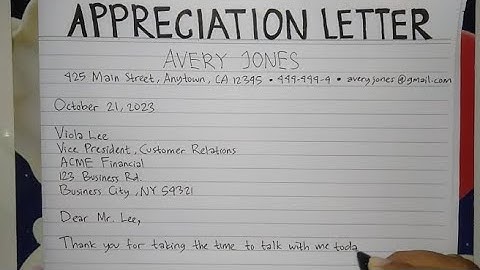 APPRECIATION LETTER
AVERY JONES
425 Main Street, Anytown, CA 12345 • 444-444-4 • averyjones@gmail.com
October 21, 2023
Viola Lee
Vice President, Customer Relations
ACME Financial
123 Business Rd.
Business City, NY 54321
Dear Mr. Lee,
Thank you for taking the time to talk with me toda